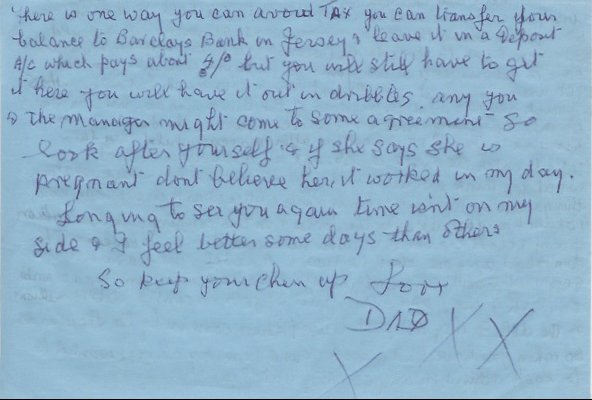 There is one way you can avoid Tax you can transfer your
balance to Barclays Bank in Jersey & leave it in a Deposit
A/C which pays about 4% but you will still have to get
it here you will have it out in dribbles. any you
& the manager might come to some agreement So
look after yourself & if she says she is
pregnant dont believe her, it worked in my day.
Longing to see you again time isnt on my
side & I feel better some days than others
So keep your chin up Love
DAD X X
X